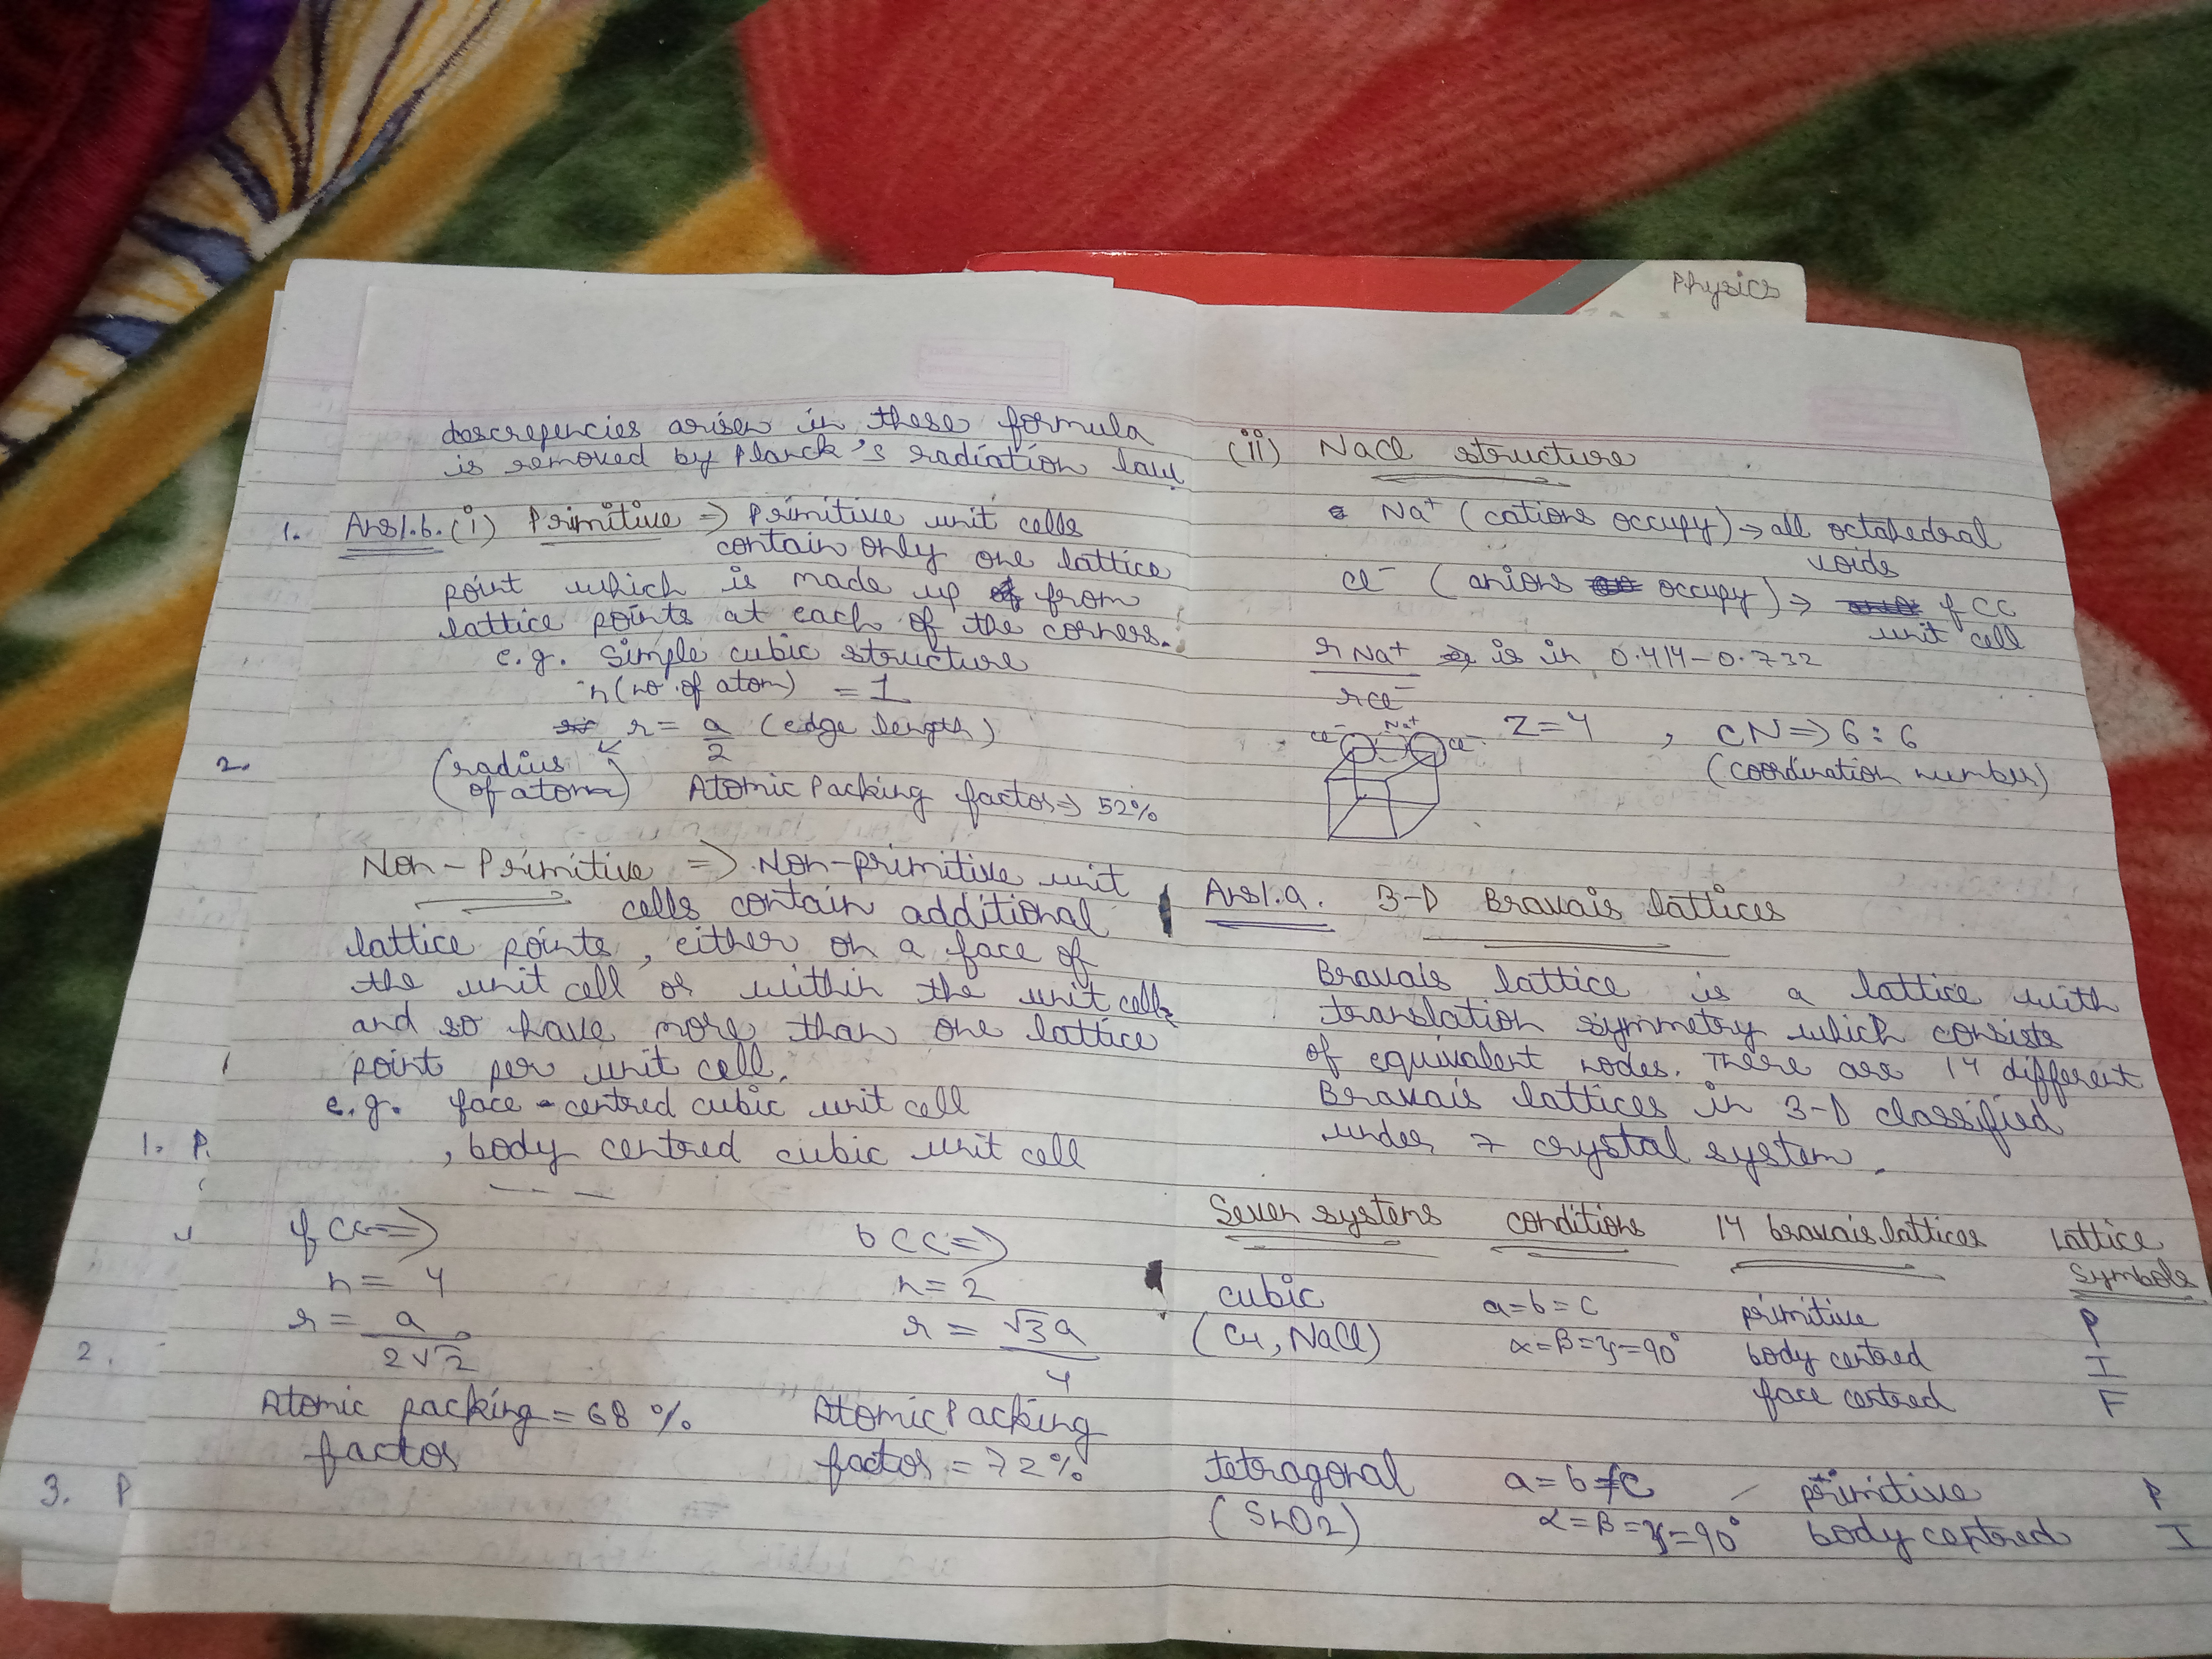 Physics
descrepencies arisen in these formula
is removed by Planck's radiation law
1. Ans1.b.(i) Primitive => Primitive unit cells
contain only one lattice
point which is made up from
lattice points at each of the corners.
e.g. simple cubic structure
n(no. of atom) = 1
r = a/2 (edge length)
2.
(radius
of atom)
Atomic Packing factor => 52%
Non-Primitive => Non-primitive unit
cells contain additional
lattice points, either on a face of
the unit cell or within the unit cell,
and so have more than one lattice
point per unit cell.
e.g. face-centred cubic unit cell
1. P.
, body centred cubic unit cell
fcc=>
n = 4
r = a/2√2
2.
Atomic packing = 68 %
factor
3. P
bcc=>
n=2
r = √3a/4
Atomic Packing
factor = 72%
(ii) NaCl structure
Na+ (cations occupy) → all octahedral
voids
Cl- (anions occupy) → fcc
unit cell
rNa+/rCl- is in 0.414-0.732
Cl- Na+ Cl-
Z=4 , CN => 6:6
(coordination number)
Ans1.a. 3-D Bravais lattices
Bravais lattice is a lattice with
translation symmetry which consists
of equivalent nodes. There are 14 different
Bravais lattices in 3-D classified
under 7 crystal system.
Seven systems conditions 14 bravais lattices Lattice
Symbols
cubic a=b=c primitive P
(Cu, NaCl) α=β=γ=90° body centred I
face centred F
tetragonal a=b≠c primitive P
(SnO2) α=β=γ=90° body centred I